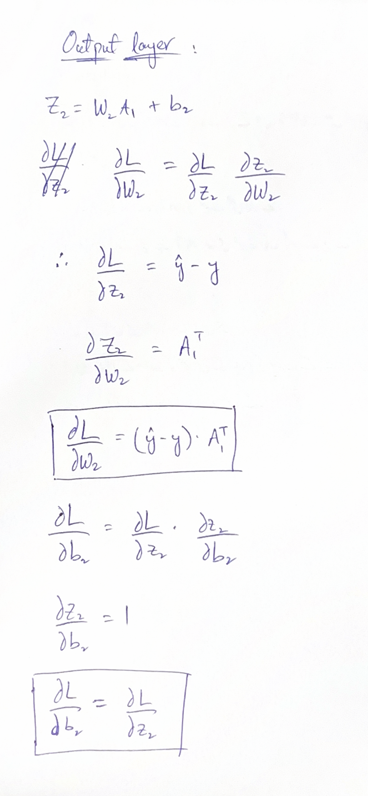 Output layer :
Z₂ = W₂ A₁ + b₂
∂L/∂W₂ = ∂L/∂Z₂ ∂Z₂/∂W₂
∴ ∂L/∂Z₂ = ŷ - y
∂Z₂/∂W₂ = A₁ᵀ
∂L/∂W₂ = (ŷ-y) · A₁ᵀ
∂L/∂b₂ = ∂L/∂Z₂ · ∂Z₂/∂b₂
∂Z₂/∂b₂ = 1
∂L/∂b₂ = ∂L/∂Z₂